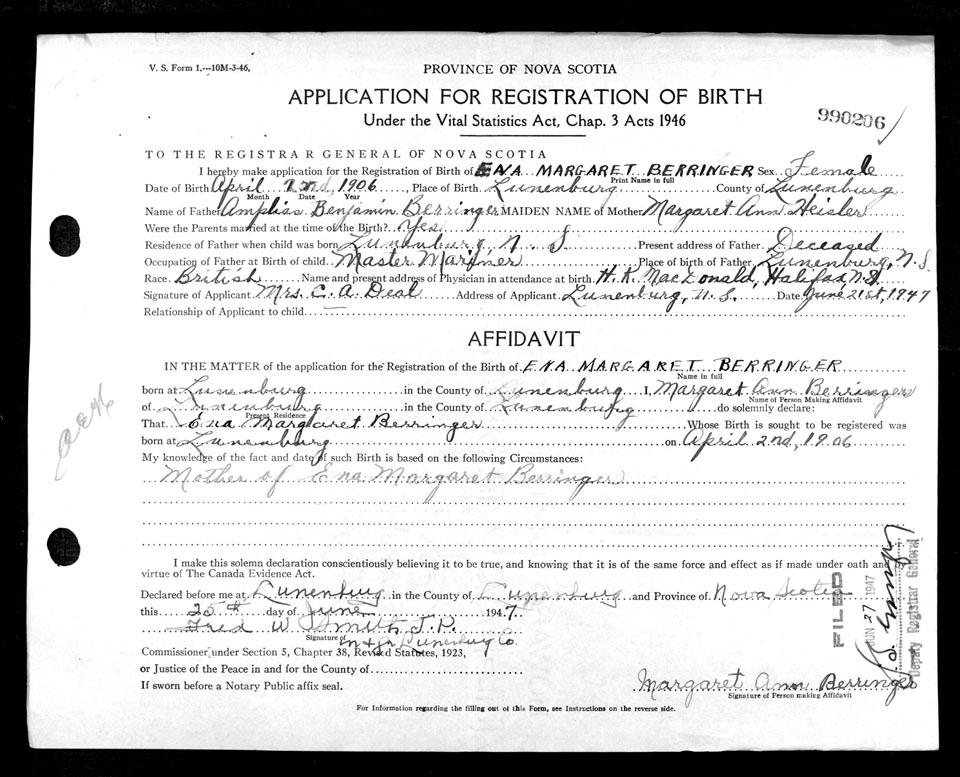 V. S. Form 1.---10M-3-46,
PROVINCE OF NOVA SCOTIA
APPLICATION FOR REGISTRATION OF BIRTH
Under the Vital Statistics Act, Chap. 3 Acts 1946
990206
TO THE REGISTRAR GENERAL OF NOVA SCOTIA
I hereby make application for the Registration of Birth of ENA MARGARET BERRINGER Sex Female
Print Name in full
Date of Birth April 2nd, 1906 Place of Birth Lunenburg County of Lunenburg
Month Date Year
Name of Father Amplias Benjamin Berringer MAIDEN NAME of Mother Margaret Ann Heisler
Were the Parents married at the time of the Birth? Yes
Residence of Father when child was born Lunenburg N. S Present address of Father Deceased
Occupation of Father at Birth of child. Master Mariner Place of birth of Father Lunenburg, N. S.
Race. British Name and present address of Physician in attendance at birth H. K. MacDonald, Halifax N.S.
Signature of Applicant Mrs. C. A. Deal Address of Applicant Lunenburg, N. S. Date June 21st, 1947
Relationship of Applicant to child
AFFIDAVIT
IN THE MATTER of the application for the Registration of the Birth of ENA MARGARET BERRINGER
Name in full
born at Lunenburg in the County of Lunenburg I, Margaret Ann Berringer
Name of Person Making Affidavit
of Lunenburg in the County of Lunenburg do solemnly declare:
Present Residence
That Ena Margaret Berringer Whose Birth is sought to be registered was
born at Lunenburg on April 2nd, 1906
My knowledge of the fact and date of such Birth is based on the following Circumstances:
Mother of Ena Margaret Berringer
I make this solemn declaration conscientiously believing it to be true, and knowing that it is of the same force and effect as if made under oath and by
virtue of The Canada Evidence Act.
Declared before me at Lunenburg in the County of Lunenburg and Province of Nova Scotia
this 25th day of June 1947
Fred W Smith J. P.
Signature of
in & for Lunenburg Co.
Commissioner under Section 5, Chapter 38, Revised Statutes, 1923,
or Justice of the Peace in and for the County of
If sworn before a Notary Public affix seal.
Margaret Ann Berringer
Signature of Person making Affidavit
For Information regarding the filling out of this Form, see Instructions on the reverse side.
FILED
JUN 27 1947
Deputy Registrar General